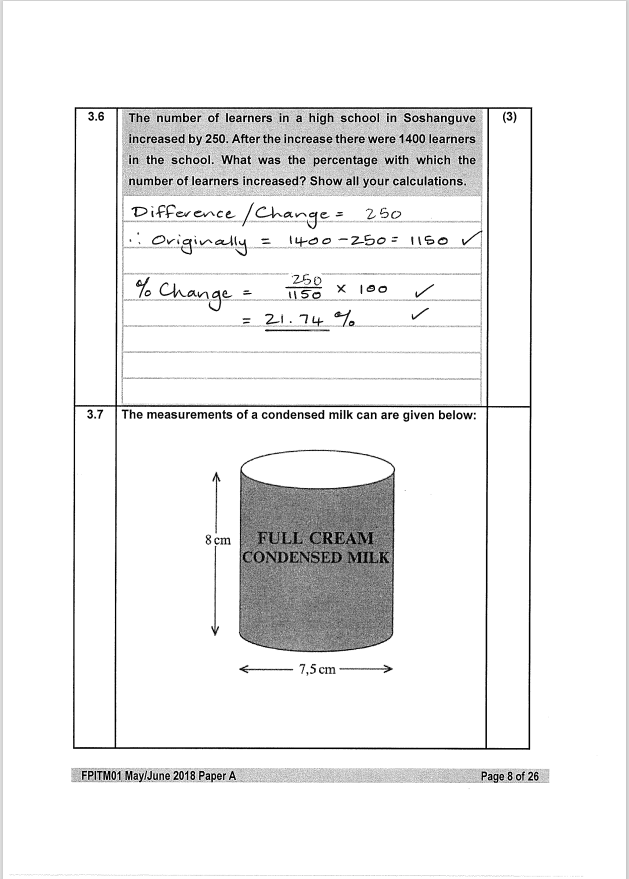 3.6
The number of learners in a high school in Soshanguve
(3)
increased by 250. After the increase there were 1400 learners
in the school. What was the percentage with which the
number of learners increased? Show all your calculations.
Difference / Change = 250
∴ Originally = 1400 - 250 = 1150 ✓
% Change = 250/1150 × 100 ✓
= 21.74 % ✓
3.7
The measurements of a condensed milk can are given below:
8 cm
FULL CREAM
CONDENSED MILK
7,5 cm
FPITM01 May/June 2018 Paper A
Page 8 of 26